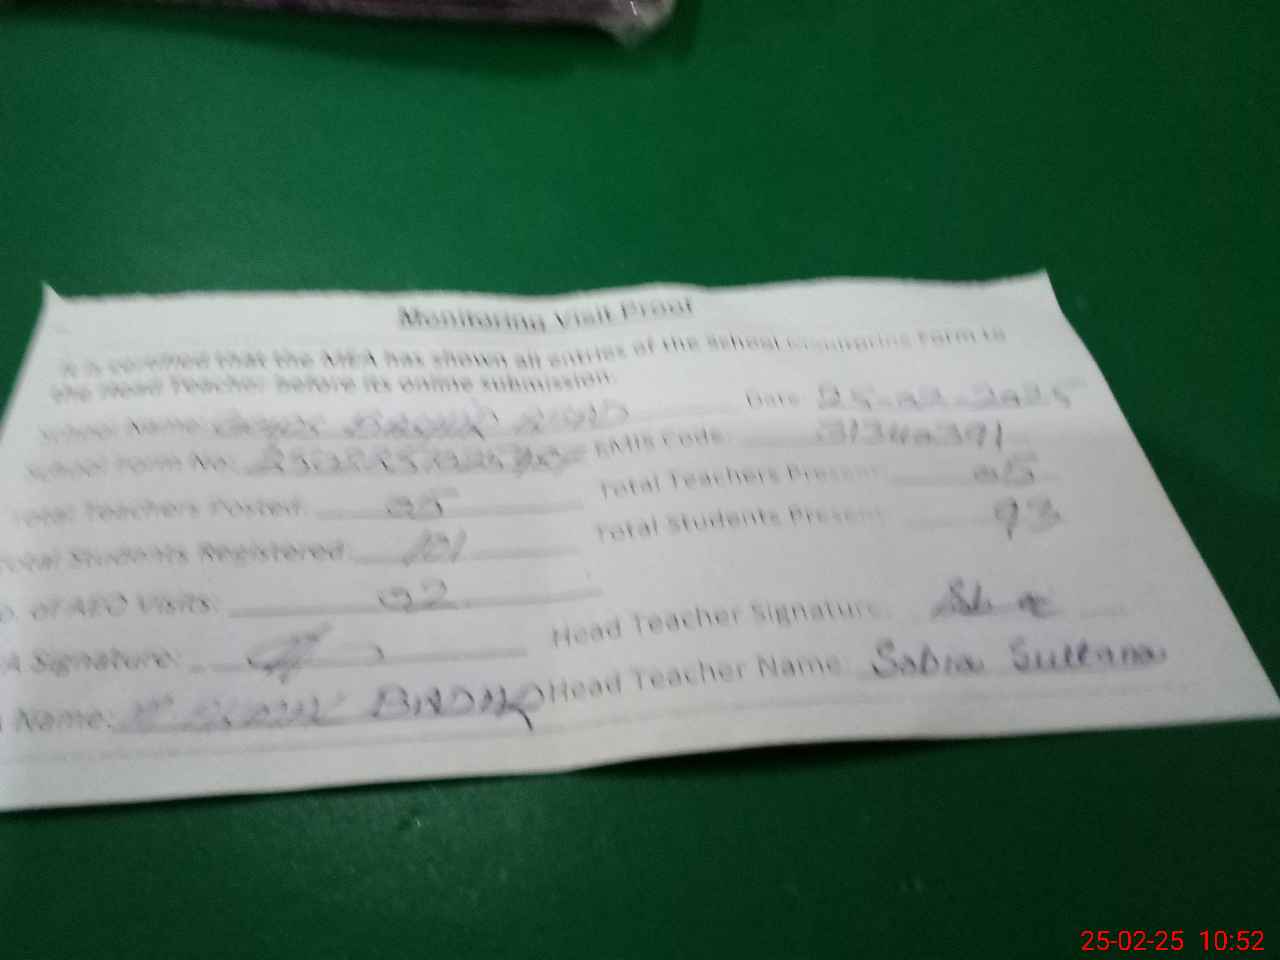 Monitoring Visit Proof
It is certified that the MEA has shown all entries of the School Monitoring Form to
the Head Teacher before its online submission.
School Name: Date: 25-02-2025
School Form No: EMIS Code: 31340391
Total Teachers Posted: 05 Total Teachers Present: 05
Total Students Registered: 101 Total Students Present: 93
o. of AEO Visits: 02
A Signature: Head Teacher Signature:
Name: Head Teacher Name: Sabia Sultana
25-02-25 10:52